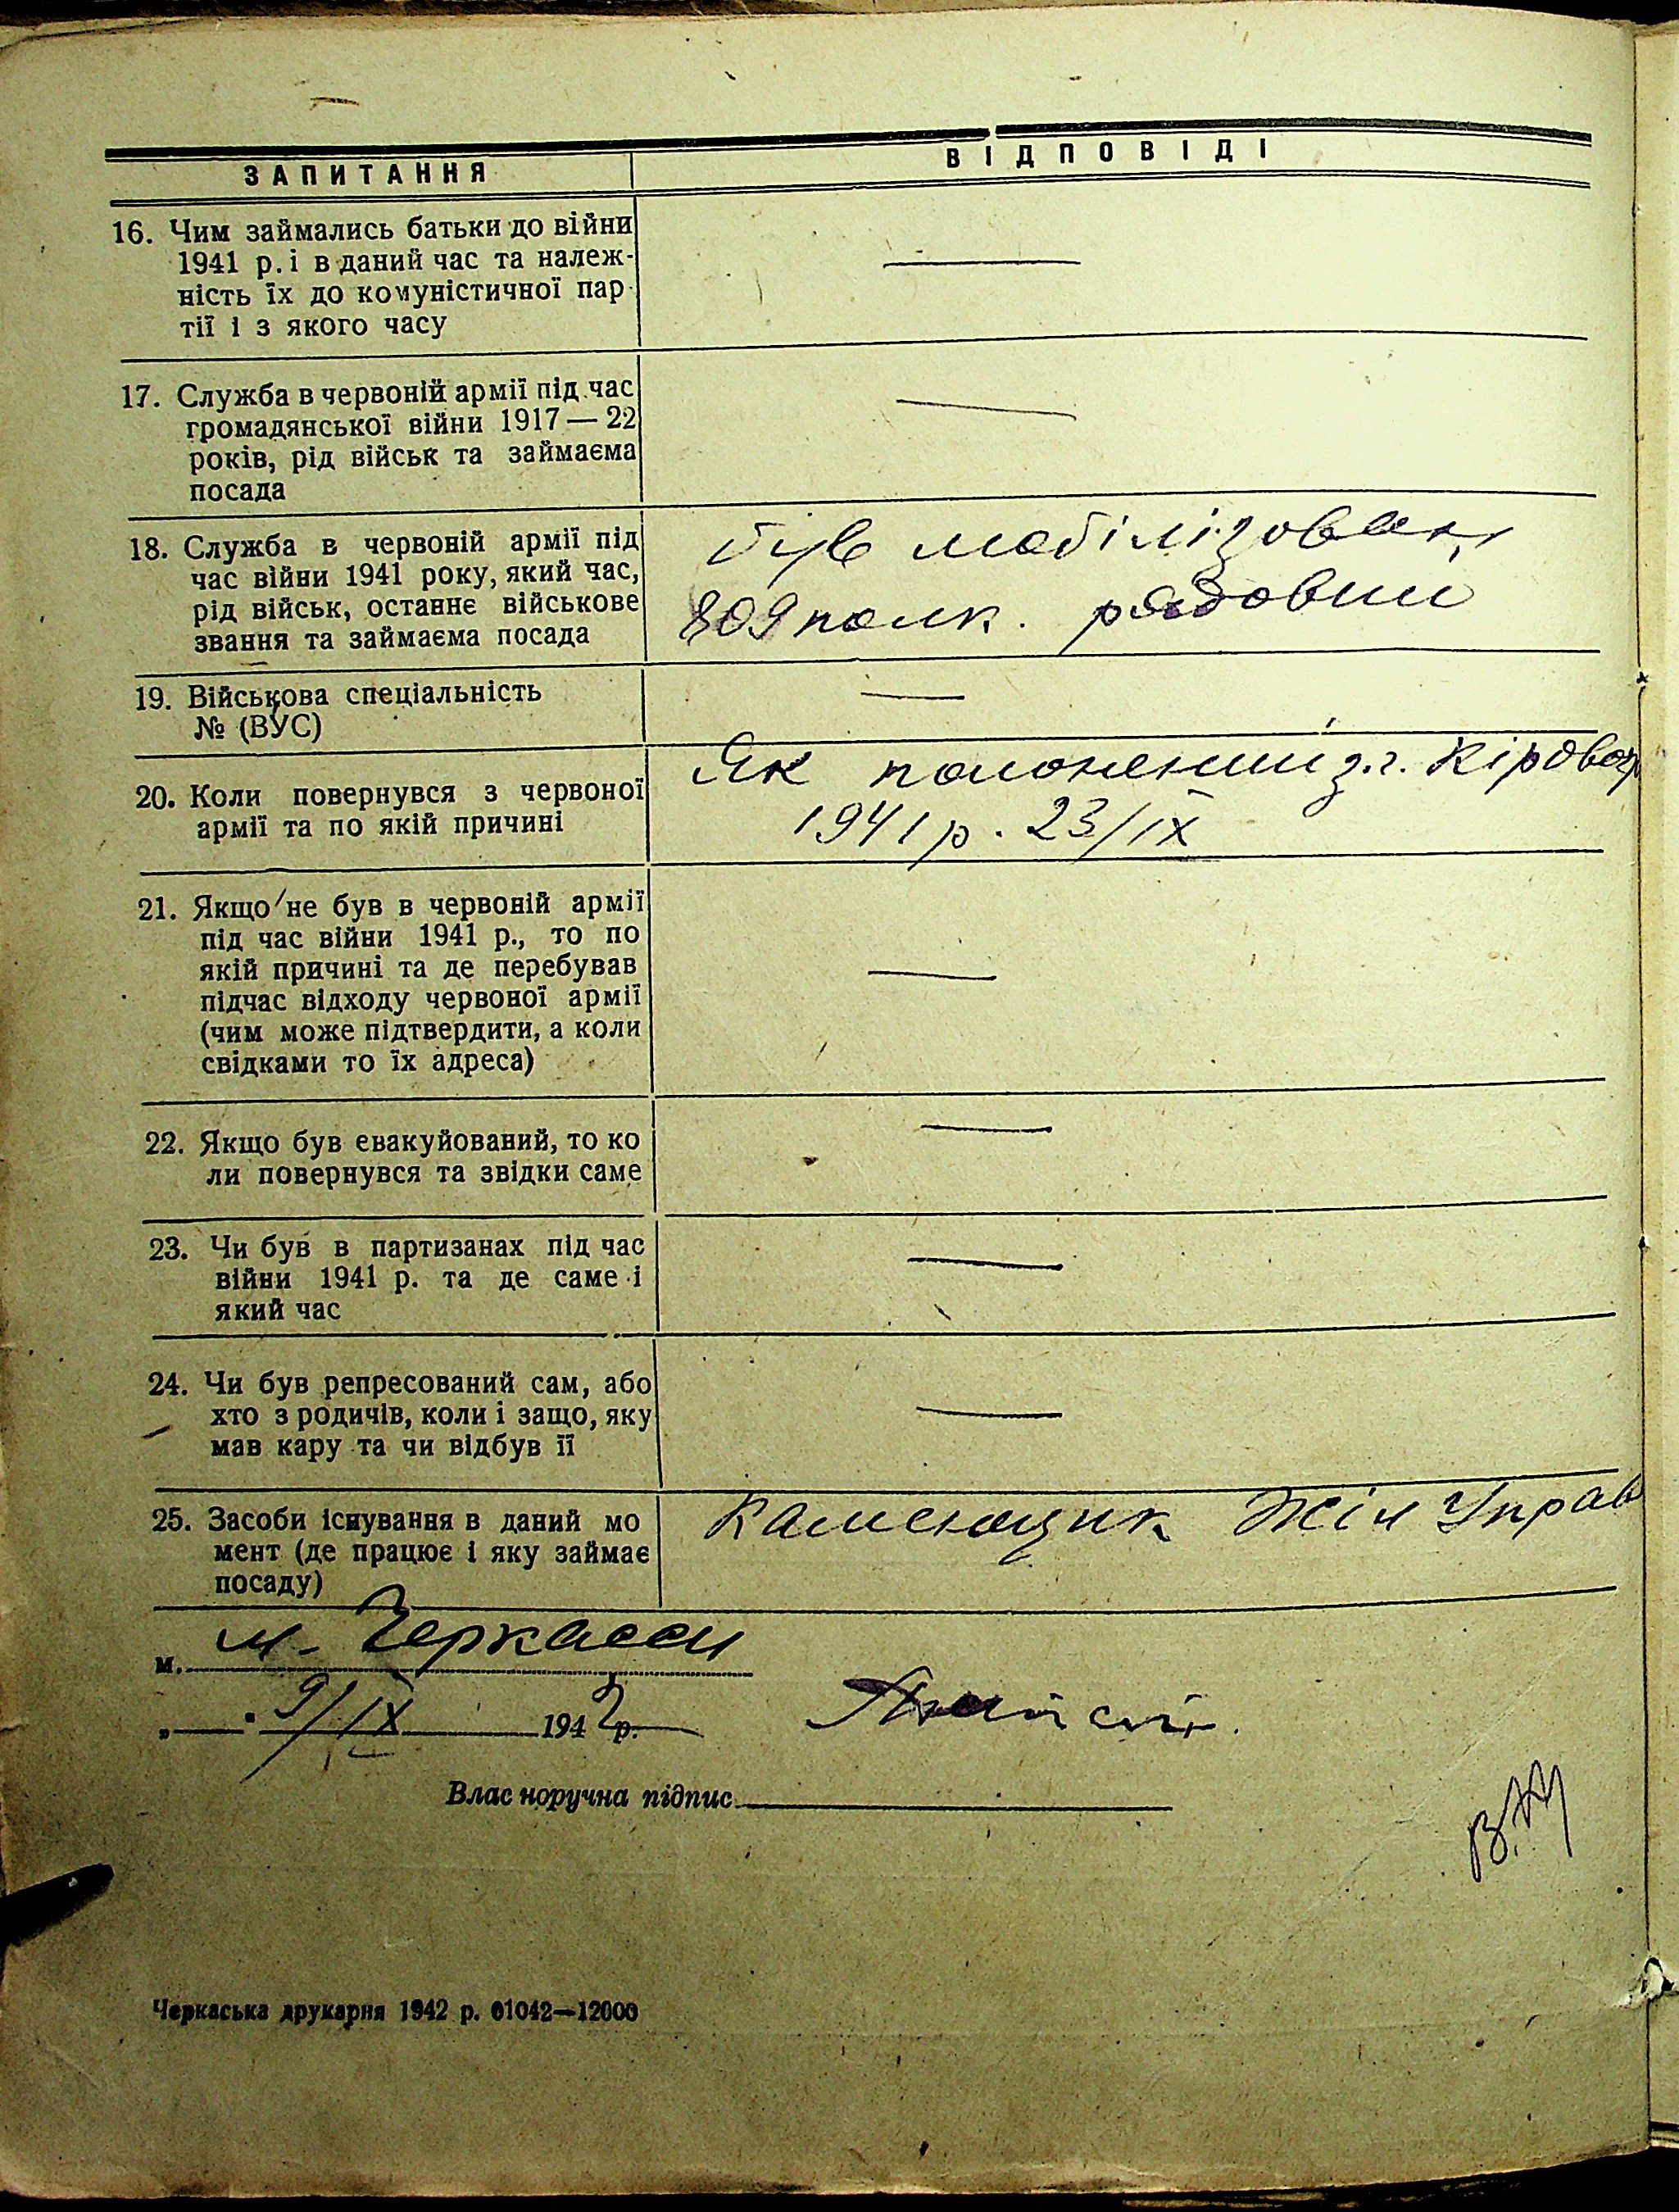 ЗАПИТАННЯ
ВІДПОВІДІ
16. Чим займались батьки до війни
1941 р. і в даний час та належ-
ність їх до комуністичної пар-
тії і з якого часу
17. Служба в червоній армії під час
громадянської війни 1917 — 22
років, рід військ та займаєма
посада
18. Служба в червоній армії під
час війни 1941 року, який час,
рід військ, останнє військове
звання та займаєма посада
був мобілізован
809 полк. рядовий
19. Військова спеціальність
№ (ВУС)
20. Коли повернувся з червоної
армії та по якій причині
Як полонений з.г. Кіровог
1941 р. 23/IX
21. Якщо не був в червоній армії
під час війни 1941 р., то по
якій причині та де перебував
підчас відходу червоної армії
(чим може підтвердити, а коли
свідками то їх адреса)
22. Якщо був евакуйований, то ко
ли повернувся та звідки саме
23. Чи був в партизанах під час
війни 1941 р. та де саме і
який час
24. Чи був репресований сам, або
хто з родичів, коли і защо, яку
мав кару та чи відбув її
25. Засоби існування в даний мо
мент (де працює і яку займає
посаду)
Каменщик Жіл Управ
м. м. Черкасси
„ 9/IX 1942 р.
Влас норучна підпис
Черкаська друкарня 1942 р. 01042—12000